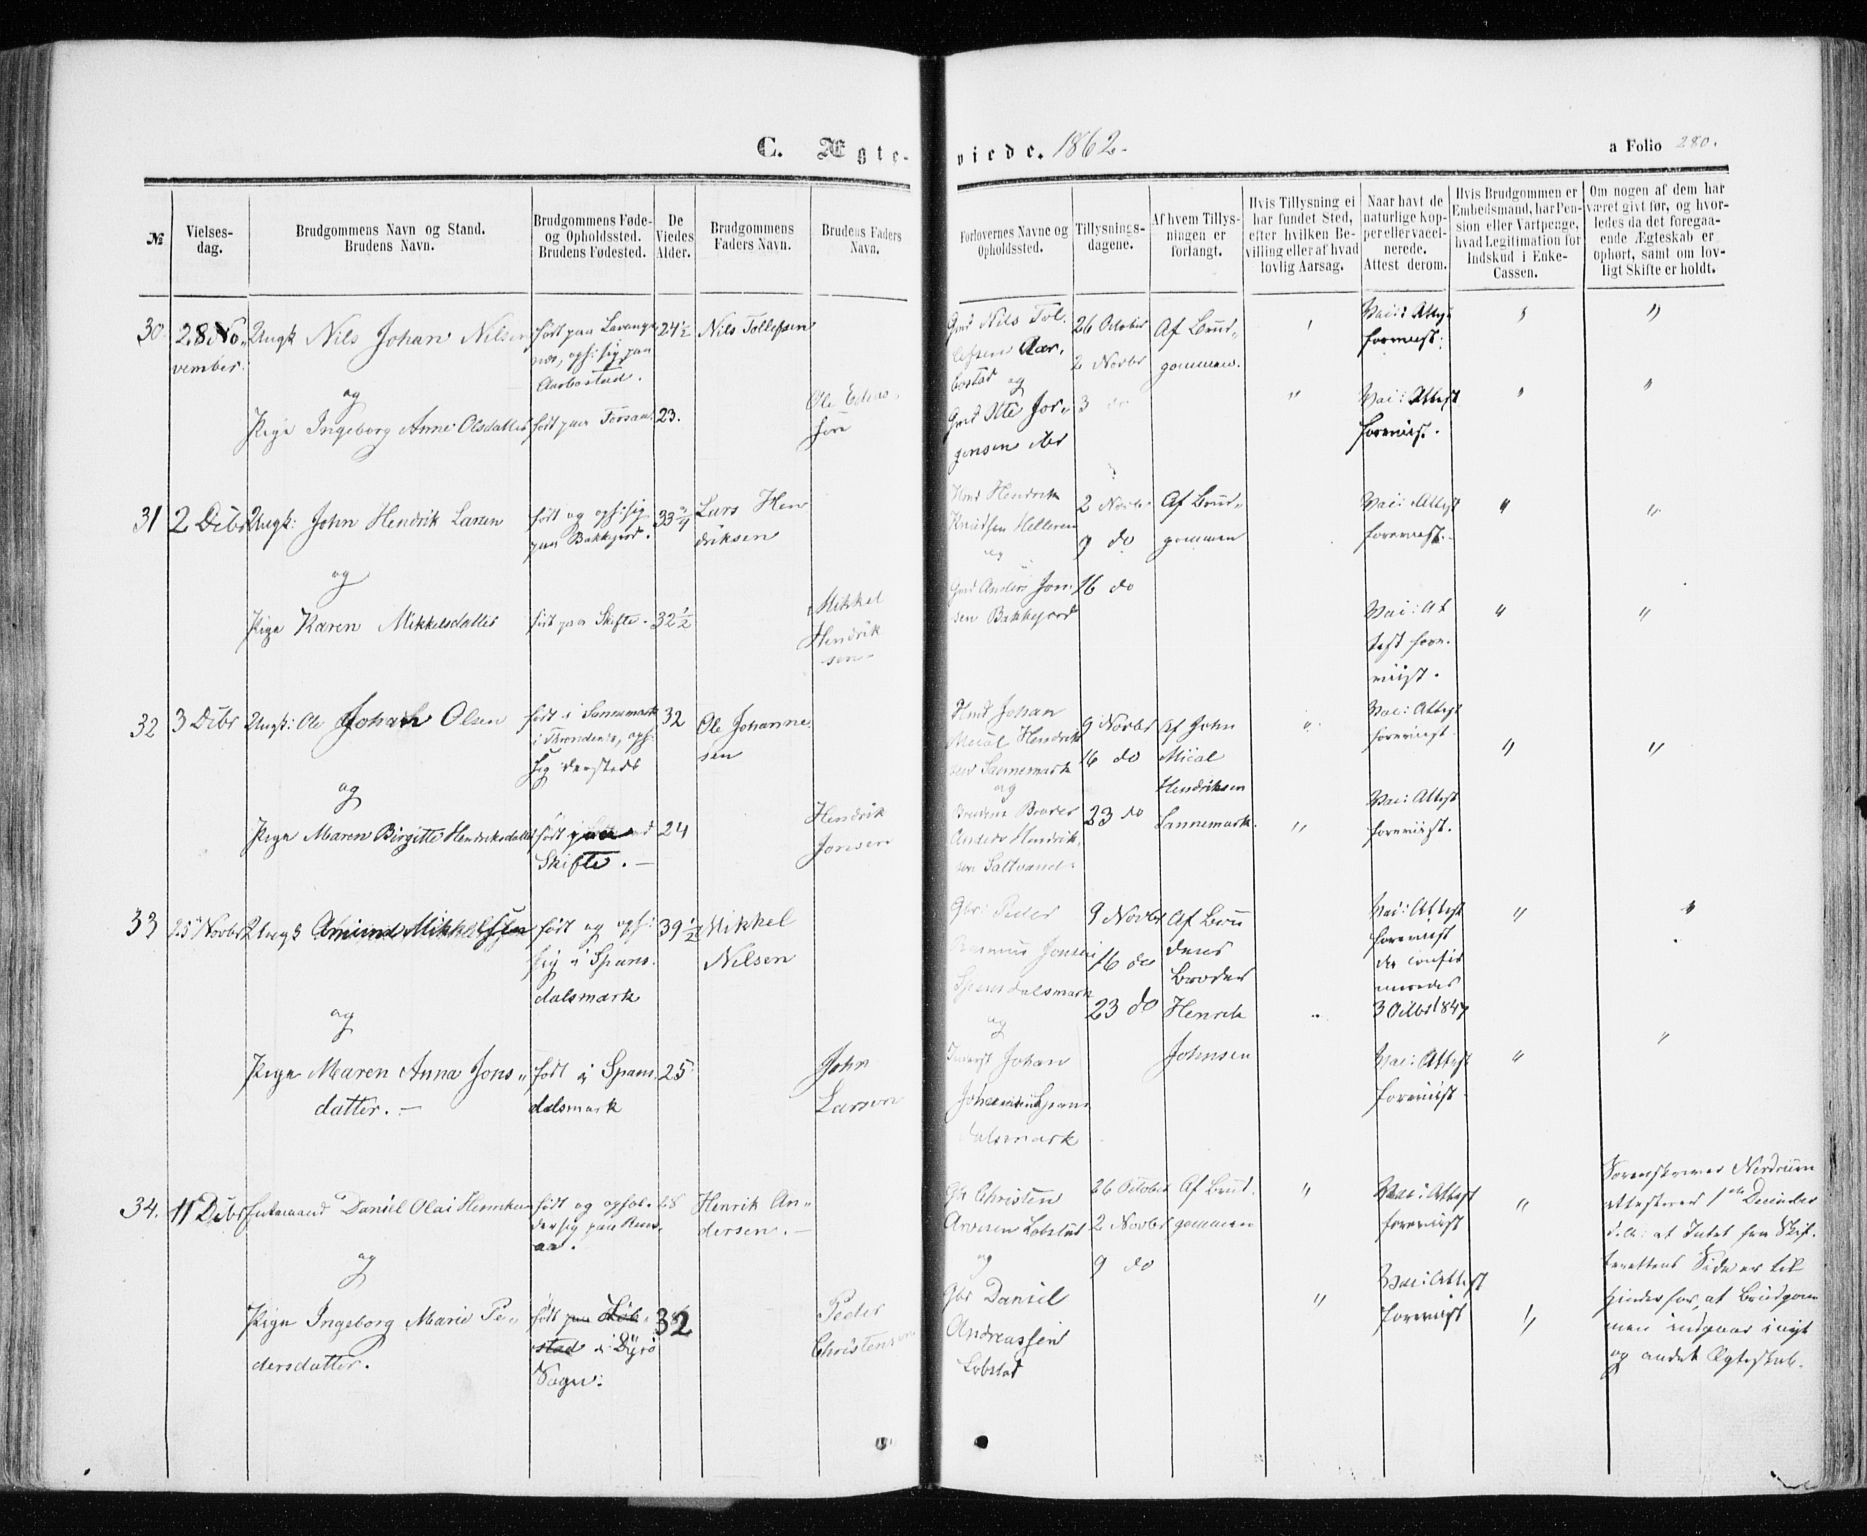 C. Ægte-
viede. 1862.
a Folio 280.
№
Vielses-
dag.
Brudgommens Navn og Stand.
Brudens Navn.
Brudgommens Føde-
og Opholdssted.
Brudens Fødested.
De
Viedes
Alder.
Brudgommens
Faders Navn.
Brudens Faders
Navn.
Forlovernes Navne og
Opholdssted.
Tillysnings-
dagene.
Af hvem Tillys-
ningen er
forlangt.
Hvis Tillysning ei
har fundet Sted,
efter hvilken Be-
villing eller af hvad
lovlig Aarsag.
Naar havt de
naturlige Kop-
per eller vacci-
nerede.
Attest derom.
Hvis Brudgommen er
Embedsmand, har Pen-
sion eller Vartpenge,
hvad Legitimation for
Indskud i Enke-
Cassen.
Om nogen af dem har
været givt før, og hvor-
ledes da det foregaa-
ende Ægteskab er
ophørt, samt om lov-
ligt Skifte er holdt.
30.
28 No-
vember.
Ungk Nils Johan Nilsen
og
Pige Ingeborg Anne Olsdatter
født paa Lavang
opf: sig paa
Aarbostad.
født paa Forsaa
24½
23.
Nils Tollefsen
Ole Edias-
sen
Gmd Nils Tol-
lefsen Aar-
bostad og
Gmd Otte Jør-
gensen
26 October
2 Novbr
3 do
Af Brud-
gommen.
Vac: Attest
foreviist.
Vac: Attest
foreviist.
31
2 Debr
Ungk: John Hendrik Larsen
og
Pige Karen Mikkelsdatter
født og opf: sig
paa Bakkejord.
født paa Skifte.
33¾
32½
Lars Hen
driksen
Mikkel
Hendrik
sen
Hmd Hendrik
Knudsen Helleren
og
Gmd Anders Jon-
sen Bakkejord
2 Novbr
9 do
16 do
Af Brud-
gommen
Vac: Attest
foreviist.
Vac: At
test fore-
viist.
32
3 Debr
Ungk: Ole Johan Olsen
og
Pige Maren Birgitte Hendriksdatter
født i Sannemark
i Trondenes, opf:
sig dersteds
født paa
Skifte.
32
24
Ole Johanne
sen
Hendrik
Jonsen
Hmd Johan
Mical Hendrik
sen Sannemark
og
Brudens Broder
Anders Hendrik-
sen Saltvand
9 Novbr
16 do
23 do
Af John
Mical
Hendriksen
Sannemark.
Vac: Attest
foreviist
Vac: Attest
foreviist.
33
25 Novbr
Ungk Amund Mikkelsen
og
Pige Maren Anna Jons-
datter.
født og opf:
sig i Spans-
dalsmark
født i Spans
dalsmark
39½
25
Mikkel
Nilsen
John
Larsen
Gbr: Peder
Rasmus Jonsen
Spansdalsmark
og
Inderst Johan
Johannesen Spans
dalsmark
9 Novbr
16 do
23 do
Af Bru
dens
Broder
Henrik
Johnsen
Vac: Attest
foreviist
da confir
meredes
3 Octbr 1847
Vac: Attest
foreviist.
34.
11 Debr
Enkemand Daniel Olai Henriksen
og
Pige Ingeborg Marie Pe-
dersdatter.
født og ophol-
der sig paa Rens
aa.
født paa Løb-
stad i Dyrø
Sogn.
28
32
Henrik An-
dersen.
Peder
Christensen
Gbr Christen
Arnesen Lobstad
og
Gbr Daniel
Andreassen
Lobstad
26 October
2 Novbr
9 do
Af Brud-
gommen
Vac: Attest
foreviist
Vac: Attest
foreviist
Sorenskriver Nordrum
attesterer 1ste December
d.A: at Intet fra Skif-
terettens Side er til
Hinder for, at Brudgom
men indgaar i nyt
og andet Ægteskab.